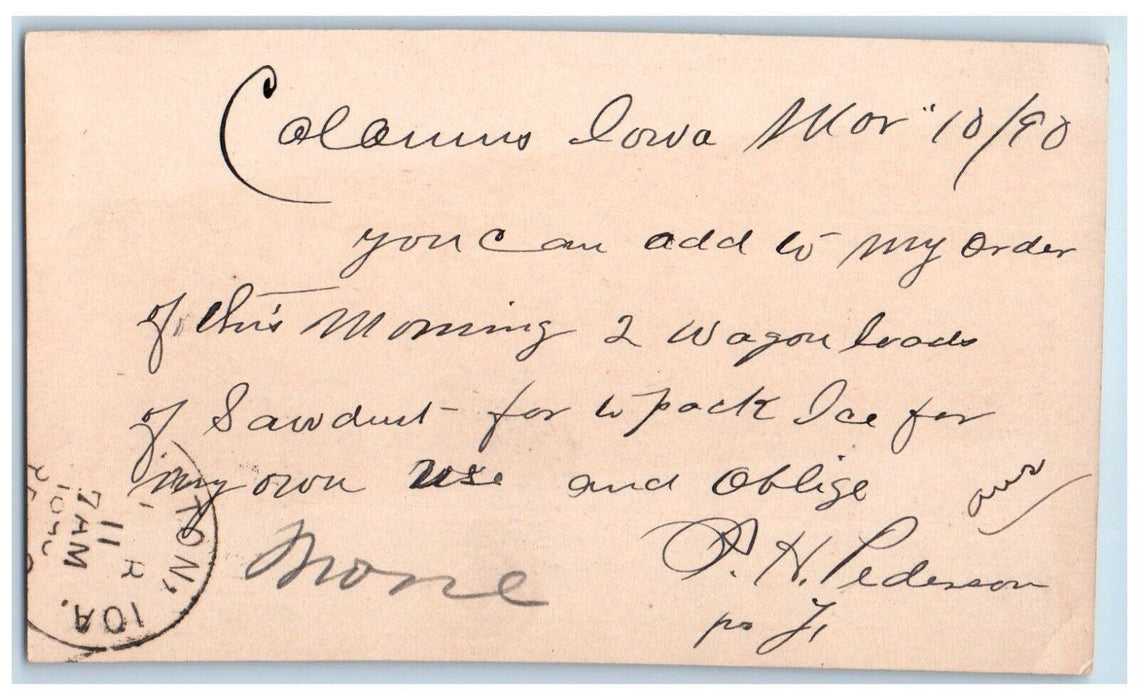 Calamus Iowa Mar "10/90
you can add to my order
of this Morning 2 wagon loads
of Sawdust for to pack Ice for
my own use and oblige
yours
P. H. Pederson
pr J,
None
TON, IOA.
11
7AM